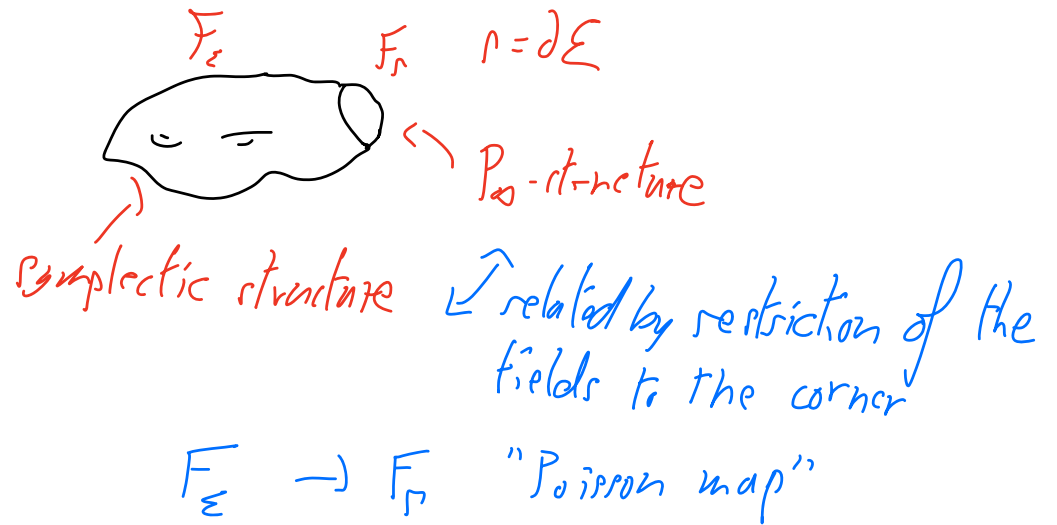 F_Σ F_Γ Γ = ∂Σ
P_∞ - structure
symplectic structure
↗↙ related by restriction of the
fields to the corner
F_Σ → F_Γ "Poisson map"